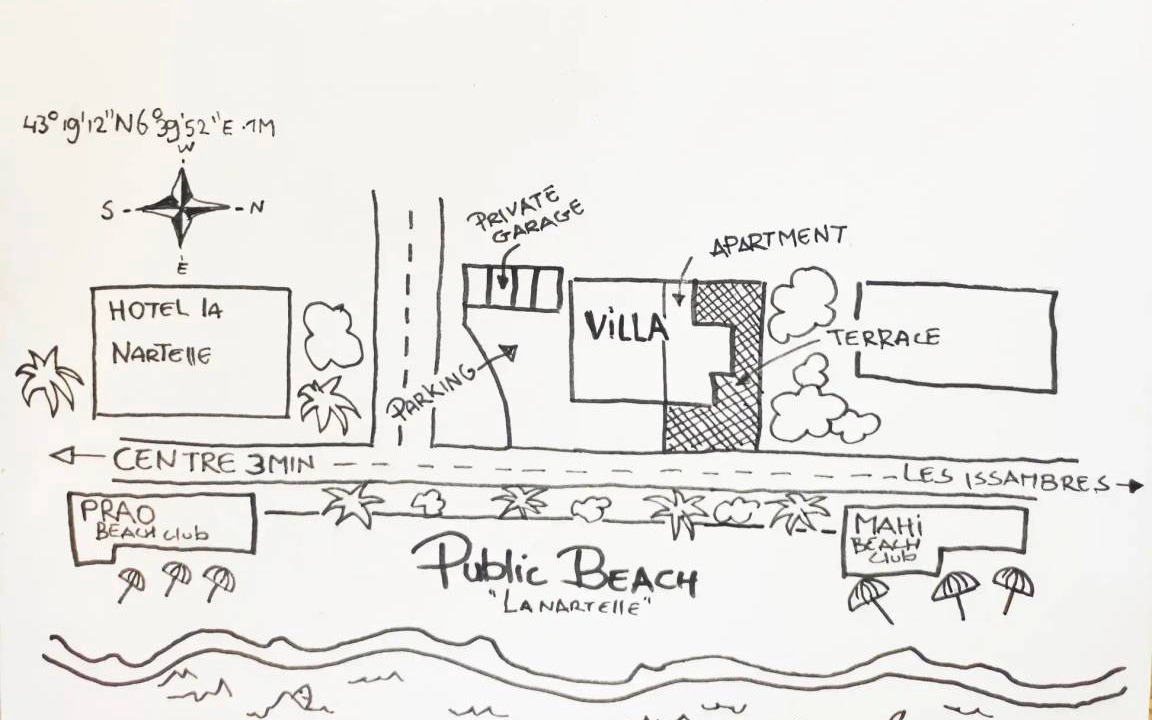 43°19'12"N6°39'52"E.1M
W
S
N
E
PRIVATE
GARAGE
APARTMENT
HOTEL lA
NARTEllE
ViLLA
TERRACE
PARKING
CENTRE 3MIN
LES ISSAMBRES
PRAO
BEACH Club
MAHi
BEACH
Club
Public BEACH
"LA NARTEllE"